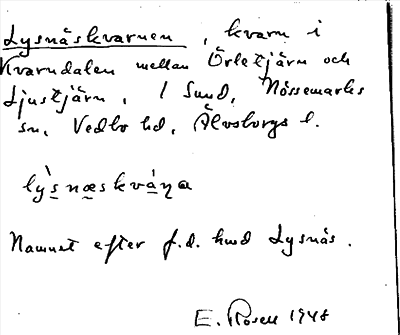 Lysnäskvarnen, kvarn i
Kvarndalen mellan Örletjärn och
Ljustjärn, i Sund, Nössemarks
sn, Vedbo hd, Älvsborgs l.
lỳsnæskvàṇa
Namnet efter f.d. hmd Lysnäs.
E. Rosell 1948